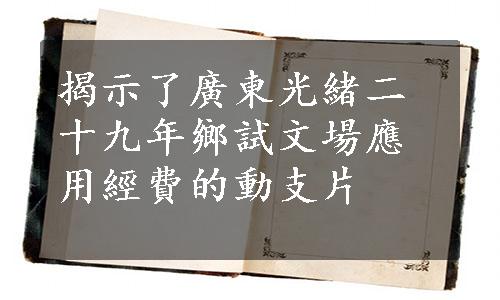 揭示了廣東光緒二
十九年鄉試文場應
用經費的動支片